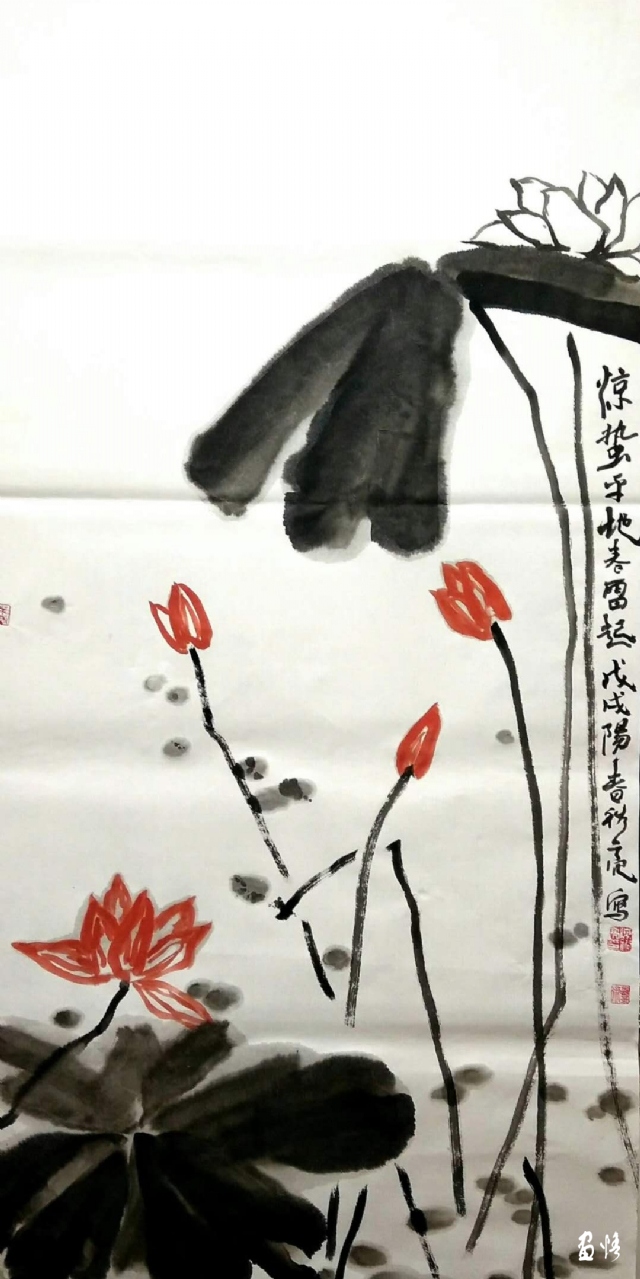 惊蛰平地春雷起戊戌陽春秋亮寫
画悟